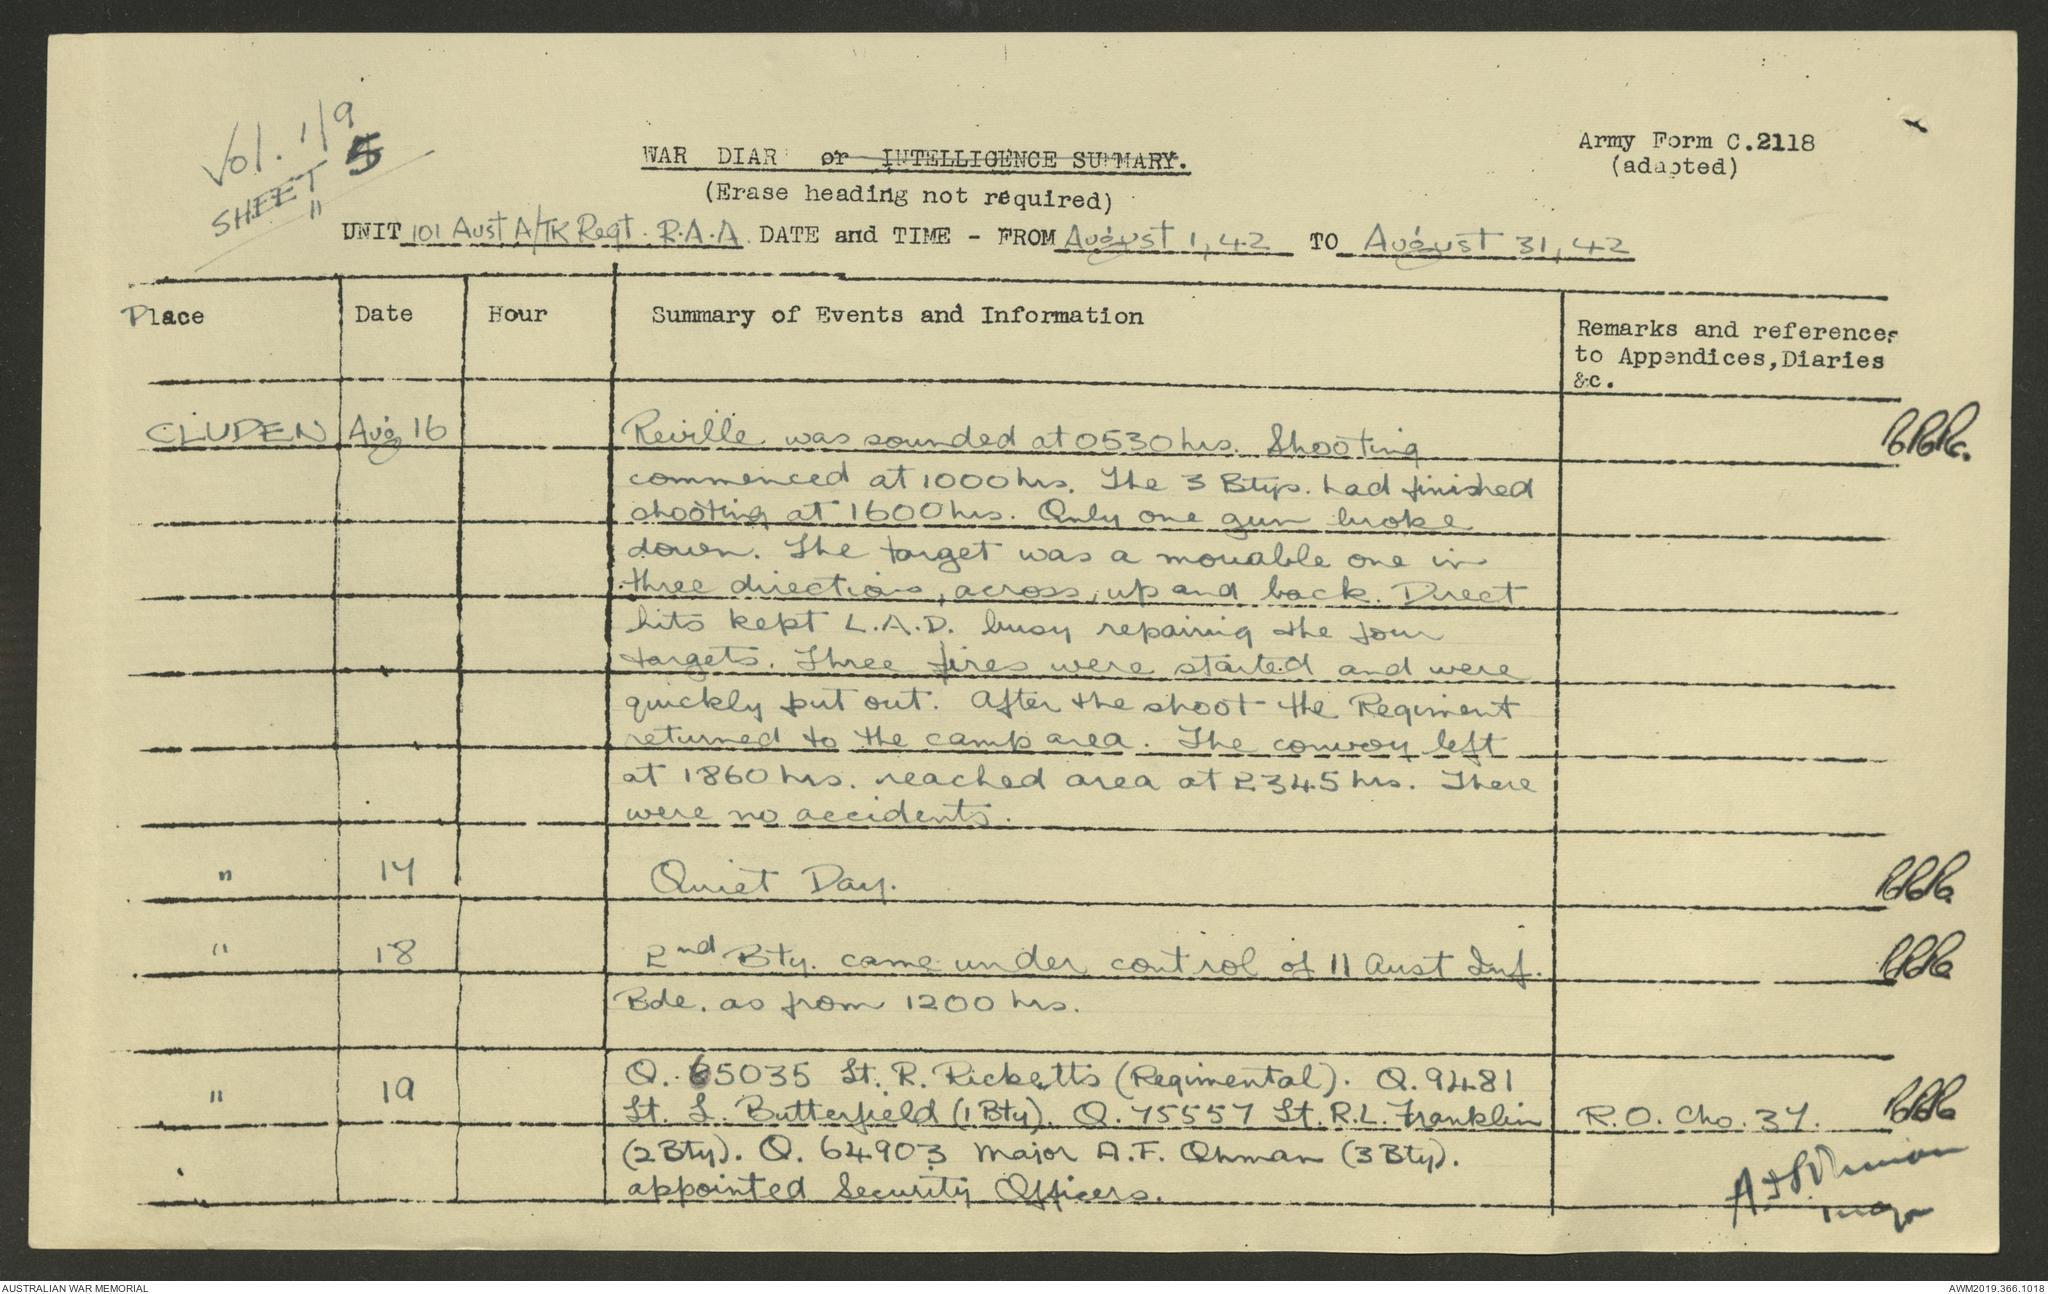 Vol. 1/9
SHEET 5
"
Army Form C.2118
(adapted)
WAR DIAR or INTELLIGENCE SUMMARY.
(Erase heading not required)
UNIT 101 Aust A/TK Regt. R.A.A. DATE and TIME - FROM August 1, 42 TO August 31, 42
Place Date Hour Summary of Events and Information
Remarks and references
to Appendices, Diaries
&c.
CLUDEN Aug 16 Reville was sounded at 0530 hrs. Shooting
commenced at 1000 hrs. The 3 Btys. had finished
shooting at 1600 hrs. Only one gun broke
down. The target was a movable one in
three directions, across, up and back. Direct
hits kept L.A.D. busy repairing the four
targets. Three fires were started and were
quickly put out. After the shoot the Regiment
returned to the camp area. The convoy left
at 1860 hrs. reached area at 2345 hrs. There
were no accidents.
" 17 Quiet Day.
" 18 2nd Bty. came under control of 11 Aust Inf.
Bde. as from 1200 hrs.
" 19 Q. 65035 Lt. R. Ricketts (Regimental). Q. 9481
Lt. L. Butterfield (1 Bty). Q. 75557 Lt. R.L. Franklin R.O. Cho. 37.
(2 Bty). Q. 64903 Major A.F. Ohman (3 Bty).
appointed Security Officers.
AUSTRALIAN WAR MEMORIAL
AWM2019.366.1018